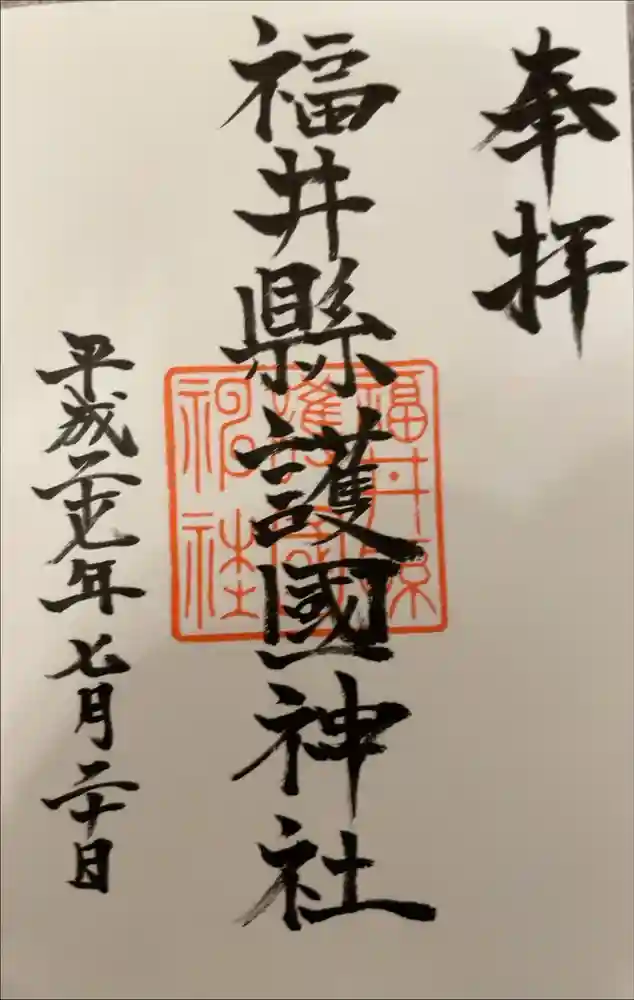 奉拝
福井縣護國神社
平成二十九年七月二十日
福井縣
護國
神社